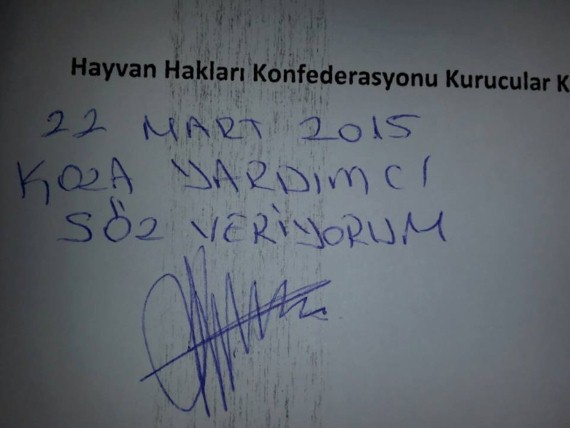 Hayvan Hakları Konfederasyonu Kurucular K
22 MART 2015
KOZA YARDIMCI
SÖZ VERİYORUM